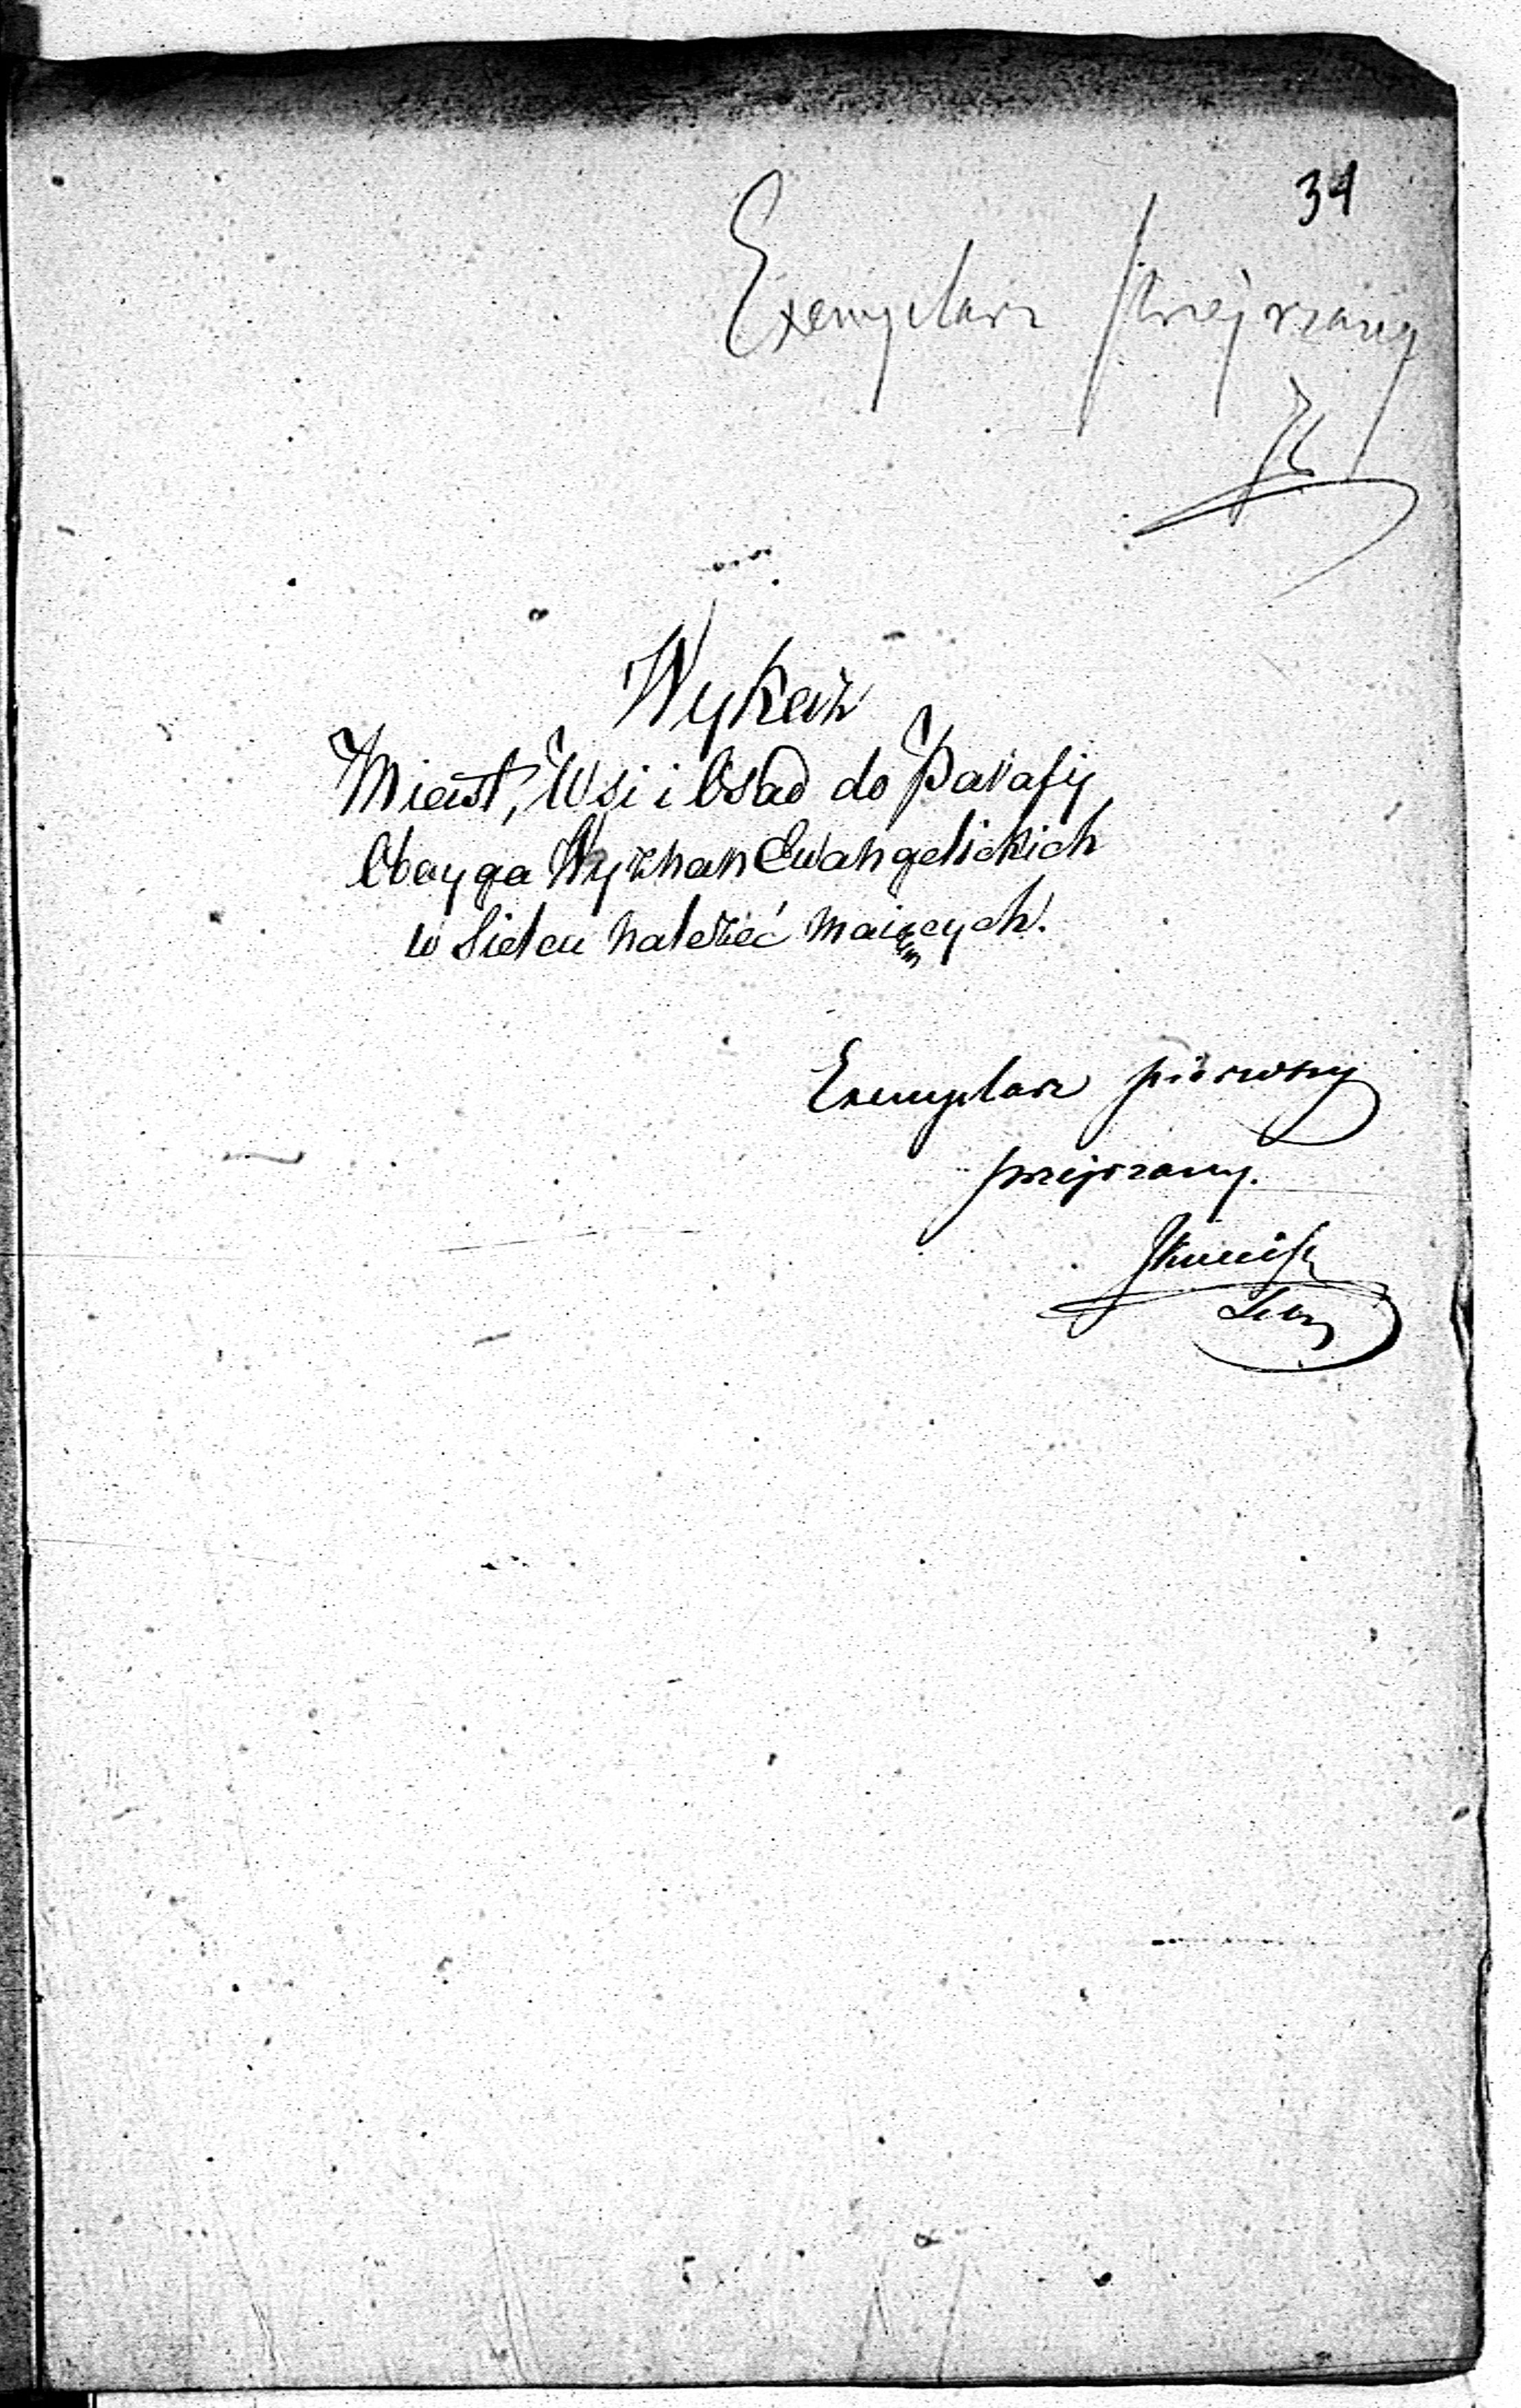 34
Exemplarz przejrzany
Wykaz
Miast, Wsi i Osad do Parafij
Oboyga Wyznan Ewangelickich
w Sielcu należeć maiących.
Exemplarz pierwszy
przejrzany.